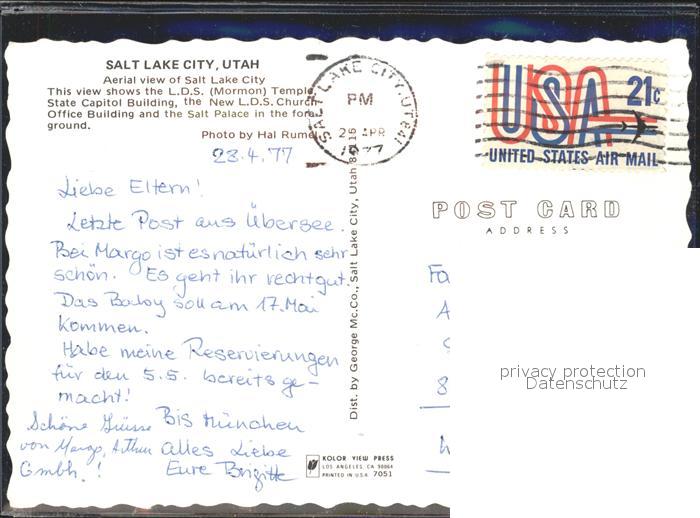 SALT LAKE CITY, UTAH
Aerial view of Salt Lake City
This view shows the L.D.S. (Mormon) Temple,
State Capitol Building, the New L.D.S. Church
Office Building and the Salt Palace in the fore-
ground.
Photo by Hal Rumel
SALT LAKE CITY, UT 841
PM
26 APR
1977
USA 21c
UNITED STATES AIR MAIL
23.4.77
Liebe Eltern!
Letzte Post aus Übersee.
Bei Margo ist es natürlich sehr
schön. Es geht ihr recht gut.
Das Baby soll am 17. Mai
kommen.
Habe meine Reservierungen
für den 5.5. bereits ge-
macht!
Bis München
alles Liebe
Eure Brigitte
Schöne Grüsse
von Margo, Arthur
!
Dist. by George Mc.Co., Salt Lake City, Utah
POST CARD
ADDRESS
Fa
A
8
privacy protection
Datenschutz
KOLOR VIEW PRESS
LOS ANGELES, CA 90064
PRINTED IN U.S.A. 7051